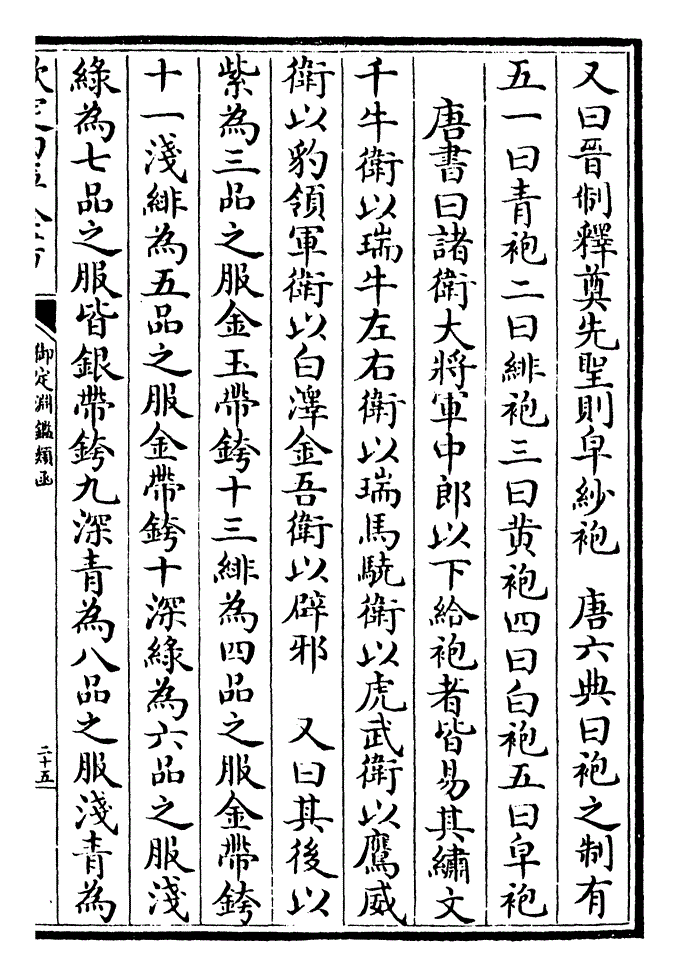 又曰晉制釋奠先聖則皁紗袍　唐六典曰袍之制有
五一曰青袍二曰緋袍三曰黄袍四曰白袍五曰皁袍
唐書曰諸衛大將軍中郎以下給袍者皆易其繡文
千牛衛以瑞牛左右衛以瑞馬驍衛以虎武衛以鷹威
衛以豹領軍衛以白澤金吾衛以辟邪　又曰其後以
紫為三品之服金玉帶銙十三緋為四品之服金帶銙
十一淺緋為五品之服金帶銙十深綠為六品之服淺
綠為七品之服皆銀帶銙九深青為八品之服淺青為
御定淵鑑類函
二十五